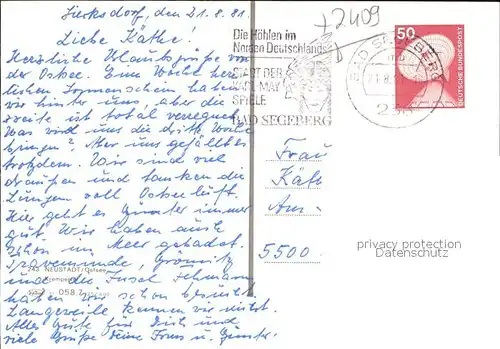 Sierksdorf, den 21.8.81
Liebe Käthe!
Herzliche Urlaubsgrüße von
der Ostsee. Eine Woche herr-
lichen Sonnenschein haben
wir hinter uns, aber die
zweite ist total verregnet.
Was wird uns die dritte Woche
bringen? Aber uns gefällt es
trotzdem. Wir sind viel
draußen und tanken die
Lungen voll Ostseeluft.
Hier geht es Günter immer
gut. Wir haben auch
schon im Meer gebadet.
Travemünde, Grömitz
und die Insel Fehmarn
haben wir schon besucht.
Langeweile kennen wir nicht.
Alles Gute für Dich und
viele Grüße Deine u. Günter
243 NEUSTADT/Ostsee
058.7
+2409
Die Höhlen im
Norden Deutschlands
STADT DER
KARL MAY
SPIELE
BAD SEGEBERG
BAD SEGEBERG
21.8.81
50
DEUTSCHE BUNDESPOST
Frau
Käth
Am
5500
privacy protection
Datenschutz